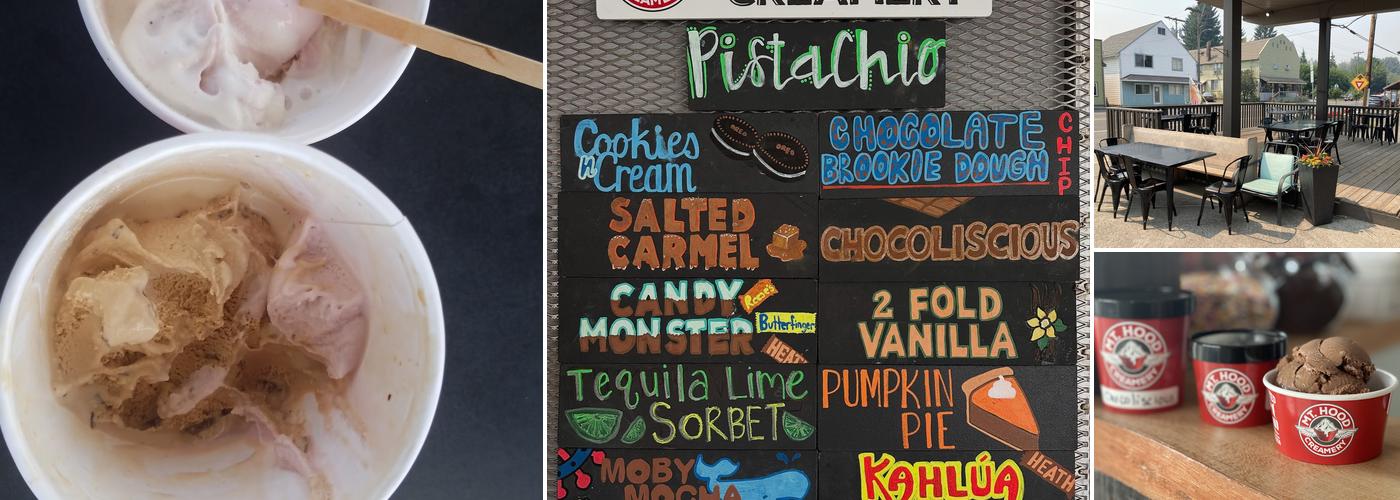 CREAMERY
Pistachio
Cookies
n'
Cream
OREO
OREO
CHOCOLATE
BROOKIE DOUGH
CHIP
SALTED
CARMEL
CHOCOLISCIOUS
CANDY
MONSTER
Butterfinger
HEAT
2 FOLD
VANILLA
Tequila Lime
SORBET
PUMPKIN
PIE
MOBY
MOCHA
KAHLÚA
HEATH
MT. HOOD
CREAMERY
MT. HOOD
CREAMERY
MT. HOOD
CREAMERY